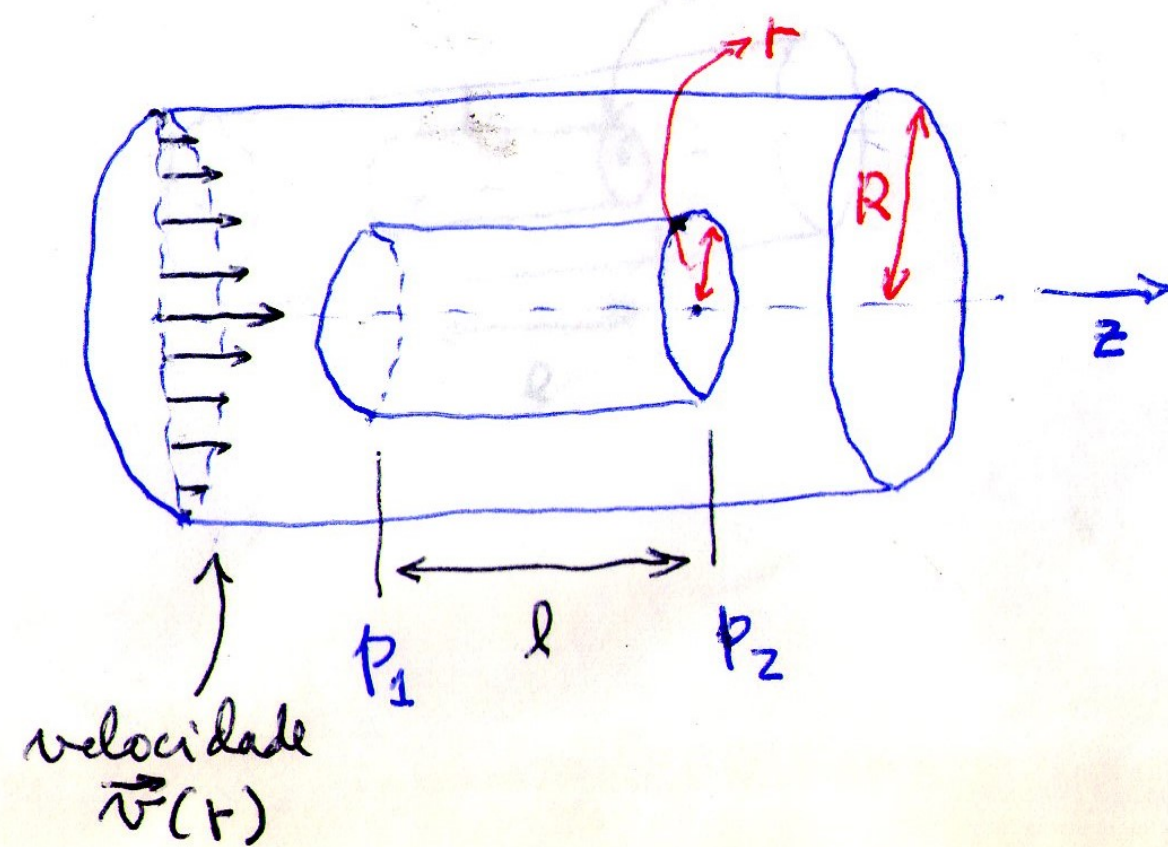 r
R
z
l
p₁
p₂
velocidade
v⃗(r)